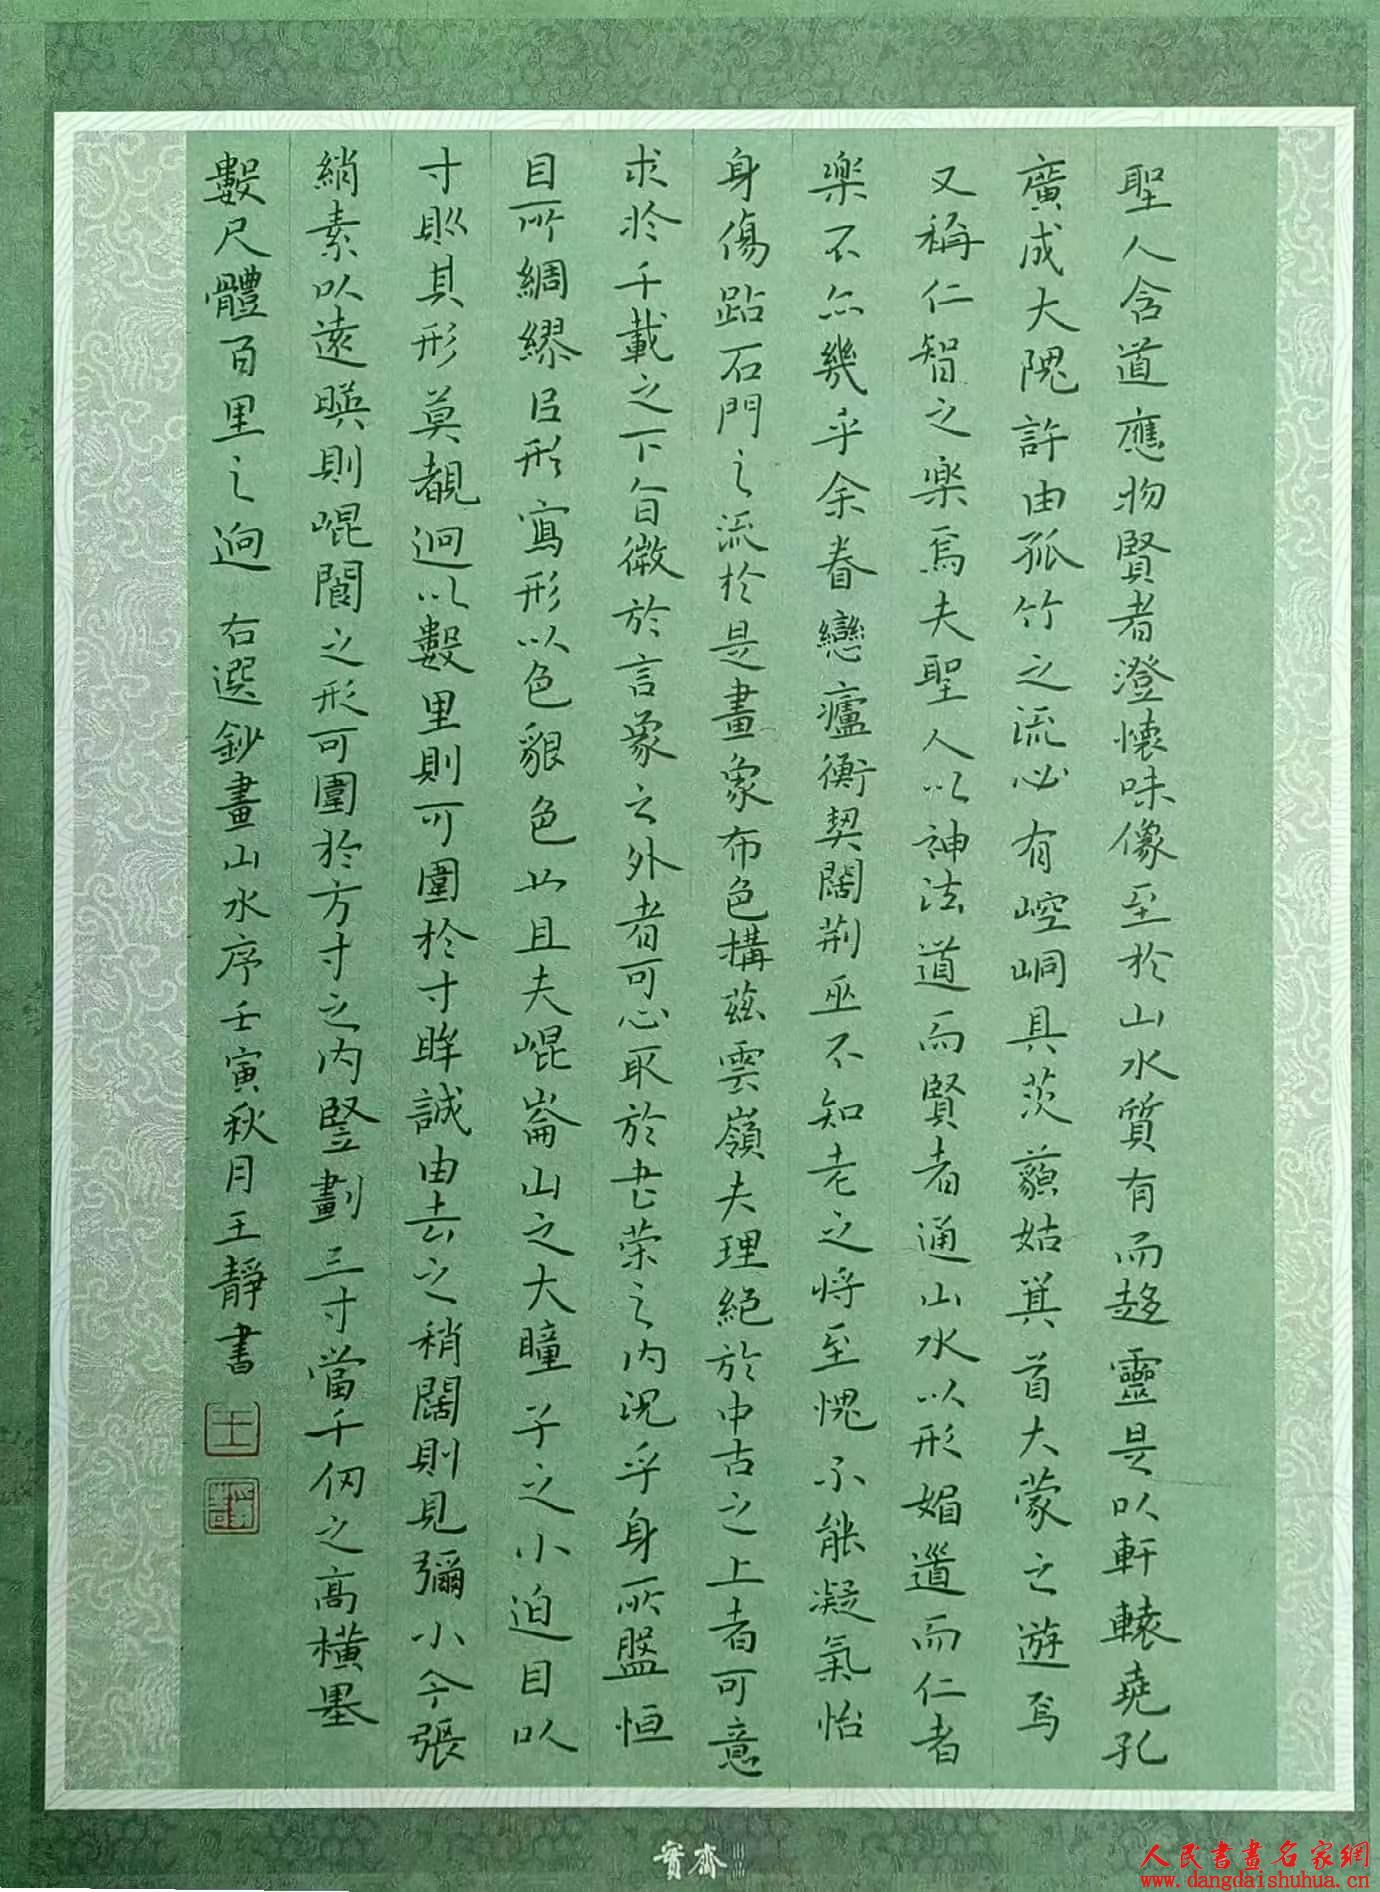 聖人含道應物賢者澄懷味像至於山水質有而趍靈是以軒轅堯孔
廣成大隗許由孤竹之流必有崆峒具茨藐姑箕首大蒙之遊焉
又稱仁智之樂焉夫聖人以神法道而賢者通山水以形媚道而仁者
樂不亦幾乎余眷戀廬衡契闊荊巫不知老之將至愧不能凝氣怡
身傷跕石門之流於是畫象布色構茲雲嶺夫理絕於中古之上者可意
求於千載之下旨微於言象之外者可心取於書策之內況乎身所盤桓
目所綢繆以形寫形以色貌色也且夫崐崙山之大瞳子之小迫目以
寸則其形莫覩迥以數里則可圍於寸眸誠由去之稍闊則見彌小今張
綃素以遠暎則崐閬之形可圍於方寸之內豎劃三寸當千仞之高橫墨
數尺體百里之迥 右選鈔畫山水序壬寅秋月王靜書
寶齋
人民書畫名家網
www.dangdaishuhua.cn